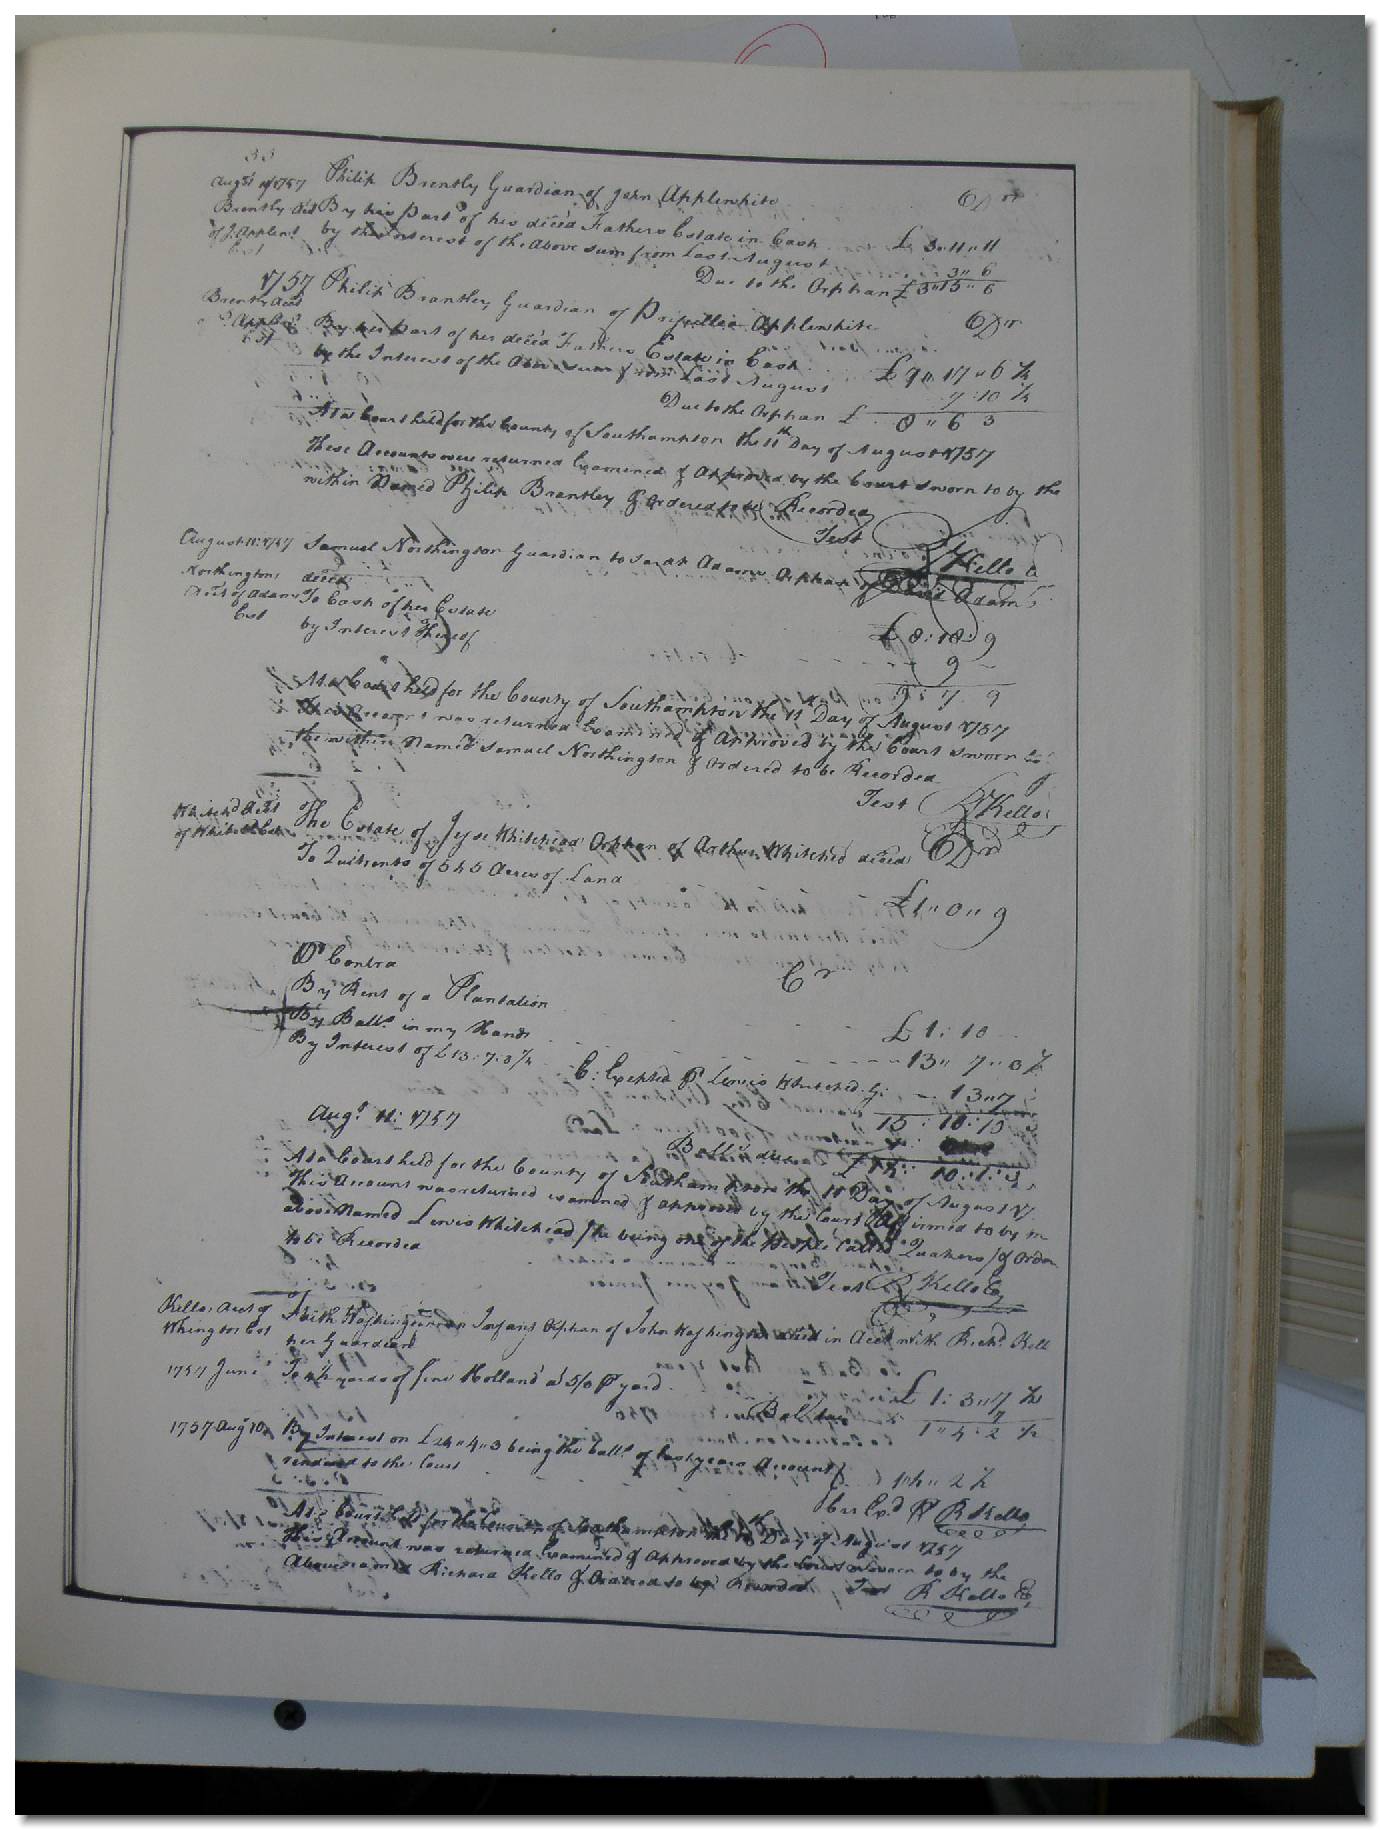 33
Augst 11 1757 Philip Brently Guardian of John Applewhite Dr
Brently Act By his part of his deced Fathers Estate in Cash £ 3 " 11 " 11
of J. Applewt by the Interest of the Above sum from Last August 3 " 6
Est Due to the Orphan £ 3 " 15 " 6
1757 Philip Brantley Guardian of Priscilla Applewhite Dr
Brently Act By her part of her deced Fathers Estate in Cash £ 17 " 6 ½
Applewt by the Interest of the Above sum from Last August 7 : 10 ¼
Est Due to the Orphan £ 8 " 6 3
At a Court held for the County of Southampton the 11th Day of August 1757
These Accounts were returned Examined & Approved by the Court Sworn to by the
within Named Philip Brantley & Ordered to be Recorded
Test R Kello
August 11: 1757 Samuel Northington Guardian to Sarah Adams Orphan of Adams
Northington deced
Act of Adams To Cash of her Estate £ 8 : 18 : 9
Est by Interest Thereof 9
9 : 7 9
At a Court held for the County of Southampton the 11 Day of August 1757
This Account was returned Examined & Approved by the Court Sworn to
the within Named Samuel Northington & Ordered to be Recorded
Test R Kello
Whitehd Act The Estate of Jesse Whitehead Orphan of Arthur Whitehed deced Dr
of Whitehd Est To Quitrents of 545 Acres of Land
£ 1 " 0 " 9
Pr Contra Cr
By Rent of a Plantation £ 1 : 10
By Balle in my Hands 13 " 7 " 0
By Interest of £13 : 7 : 0 13 " 7
E: Excepted P Lewis Whitehed G:
15 : 10 : 10
Augt 11: 1757 Balle due £ 14 : 10 : 1
At a Court held for the County of Southampton the 11 Day of August 17
This Account was returned examined & approved by the Court Affirmed to by
above Named Lewis Whitehead /he being one of the People Called Quakers/ & Order
to be Recorded
Test R Kello
Kellos Act of Faith Washington an Infant Orphan of John Washington deced in Acct with Richd Kell
Whington Est her Guardian
1757 June To 4½ yards of fine Holland a 5/ P yard £ 1 : 3 " 7 ½
Bal due 7
1 " 4 : 2 ½
1757 Augt 10 By Interest on £24 " 4 " 3 being the balle of last years Account
rendred to the Court 1 " 4 " 2 ½
Err Exd P R Kello
At a Court held for the County of Southampton the Day of August 1757
This Account was returned Examined & Approved by the Court Sworn to by the
Above named Richard Kello & Ordered to be Recorded Test R Kello